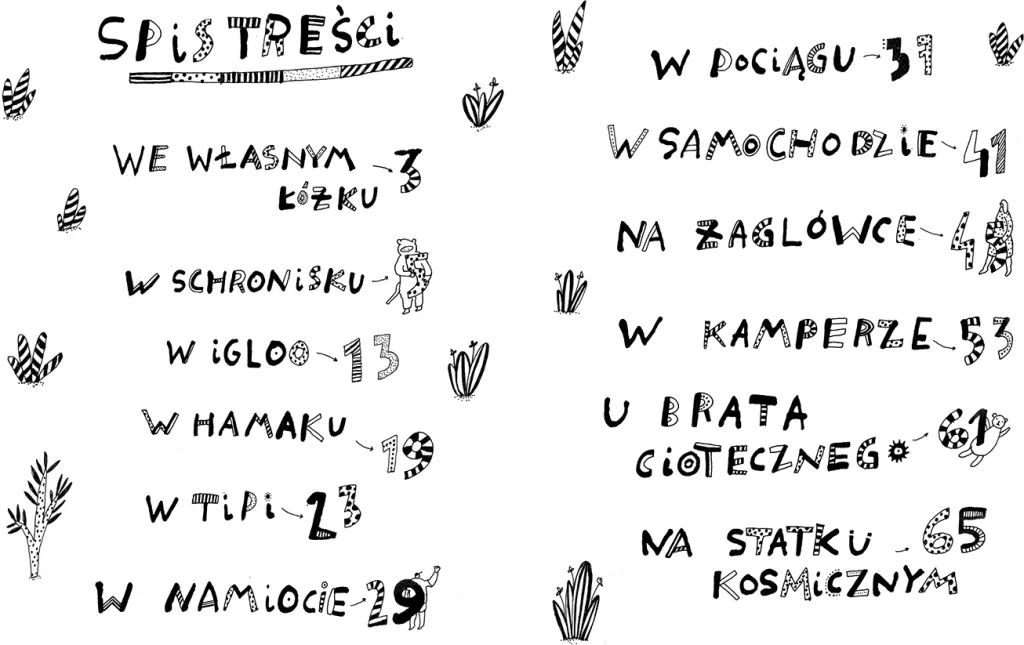 SPIS TREŚCI
WE WŁASNYM 3
ŁÓŻKU
W SCHRONISKU 5
W IGLOO 13
W HAMAKU 19
W TIPI 23
W NAMIOCIE 29
W POCIĄGU 31
W SAMOCHODZIE 41
NA ŻAGLÓWCE
W KAMPERZE 53
U BRATA
CIOTECZNEGO 61
NA STATKU 65
KOSMICZNYM